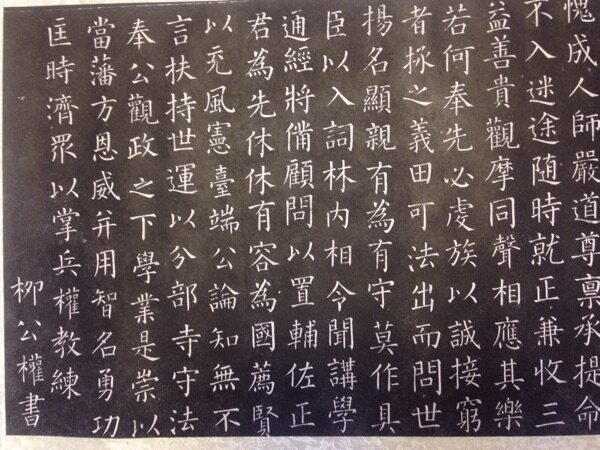 愧成人師嚴道尊禀承提命
不入迷途随時就正兼收三
益善貴觀摩同聲相應其樂
若何奉先必虔族以誠接窮
者拯之義田可法出而問世
揚名顯親有為有守莫作具
臣以入詞林内相令聞講學
通經將備顧問以置輔佐正
君為先休休有容為國薦賢
以充風憲臺端公論知無不
言扶持世運以分部寺守法
奉公觀政之下學業是崇以
當藩方恩威并用智名勇功
匡時濟眾以掌兵權教練
柳公權書